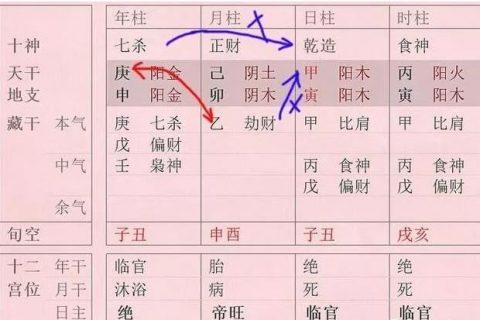 年柱 月柱 日柱 时柱
十神 七杀 正财 乾造 食神
天干 庚 阳金 己 阴土 甲 阳木 丙 阳火
地支 申 阳金 卯 阴木 寅 阳木 寅 阳木
藏干 本气 庚 七杀 乙 劫财 甲 比肩 甲 比肩
戊 偏财
中气 壬 枭神 丙 食神 丙 食神
戊 偏财 戊 偏财
余气
旬空 子丑 申酉 子丑 戌亥
十二 年干 临官 胎 绝 绝
宫位 月干 沐浴 病 死 死
日主 绝 帝旺 临官 临官